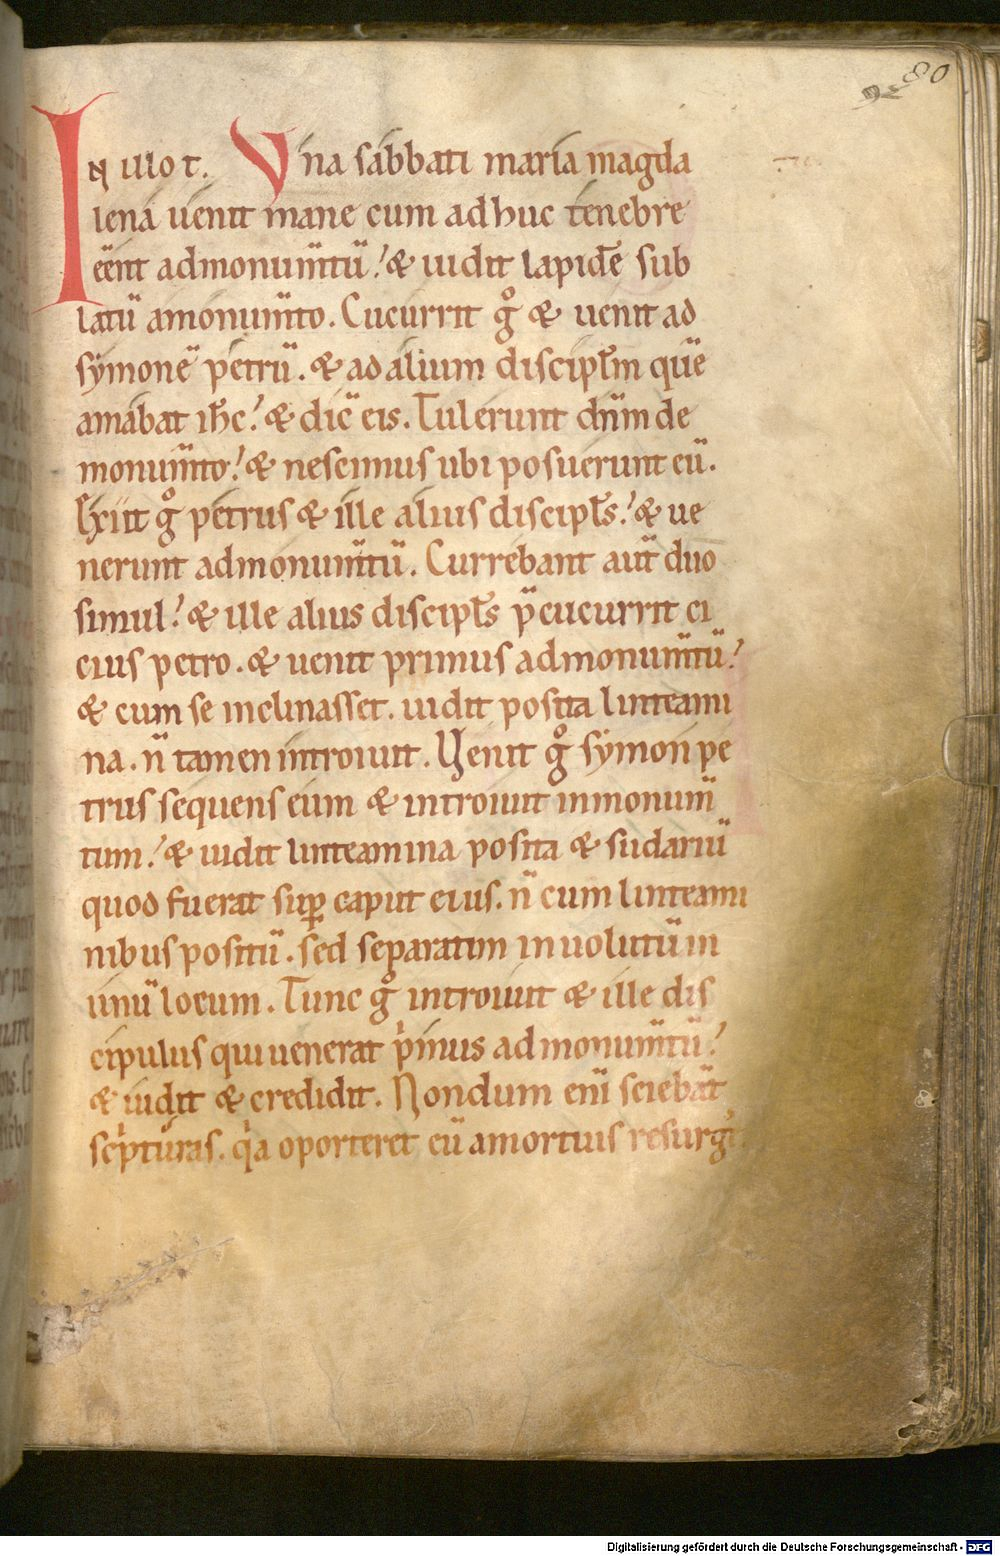 80
IN illo t. Vna sabbati maria magda
lena uenit mane cum adhuc tenebre
eēnt admonum̄tū. & uidit lapidē sub
latū amonum̄to. Cucurrit gͦ & uenit ad
symonē petrū. & ad alium discipłm quē
amabat ih̄c. & dic̄ eis. Tulerunt dn̄m de
monum̄to. & nescimus ubi posuerunt eū.
Exiit gͦ petrus & ille alius discipłs. & ue
nerunt admonum̄tū. Currebant aut̄ duo
simul. & ille alius discipłs p̄cucurrit ci
cius petro. & uenit primus admonum̄tū.
& cum se inclinasset. uidit posita linteami
na. n̄ tamen introiuit. Uenit gͦ symon pe
trus sequens eum & introiuit inmonum̄
tum. & uidit linteamina posita & sudariū
quod fuerat suꝑ caput eius. n̄ cum linteami
nibus positū. sed separatim inuolutū in
unū locum. Tunc gͦ introiuit & ille dis
cipulus qui uenerat pͥmus admonum̄tū.
& uidit & credidit. Nondum eni̅ sciebāt
scͥpturas. qͥa oporteret eū amortuis resurgͤ.
Digitalisierung gefördert durch die Deutsche Forschungsgemeinschaft - DFG